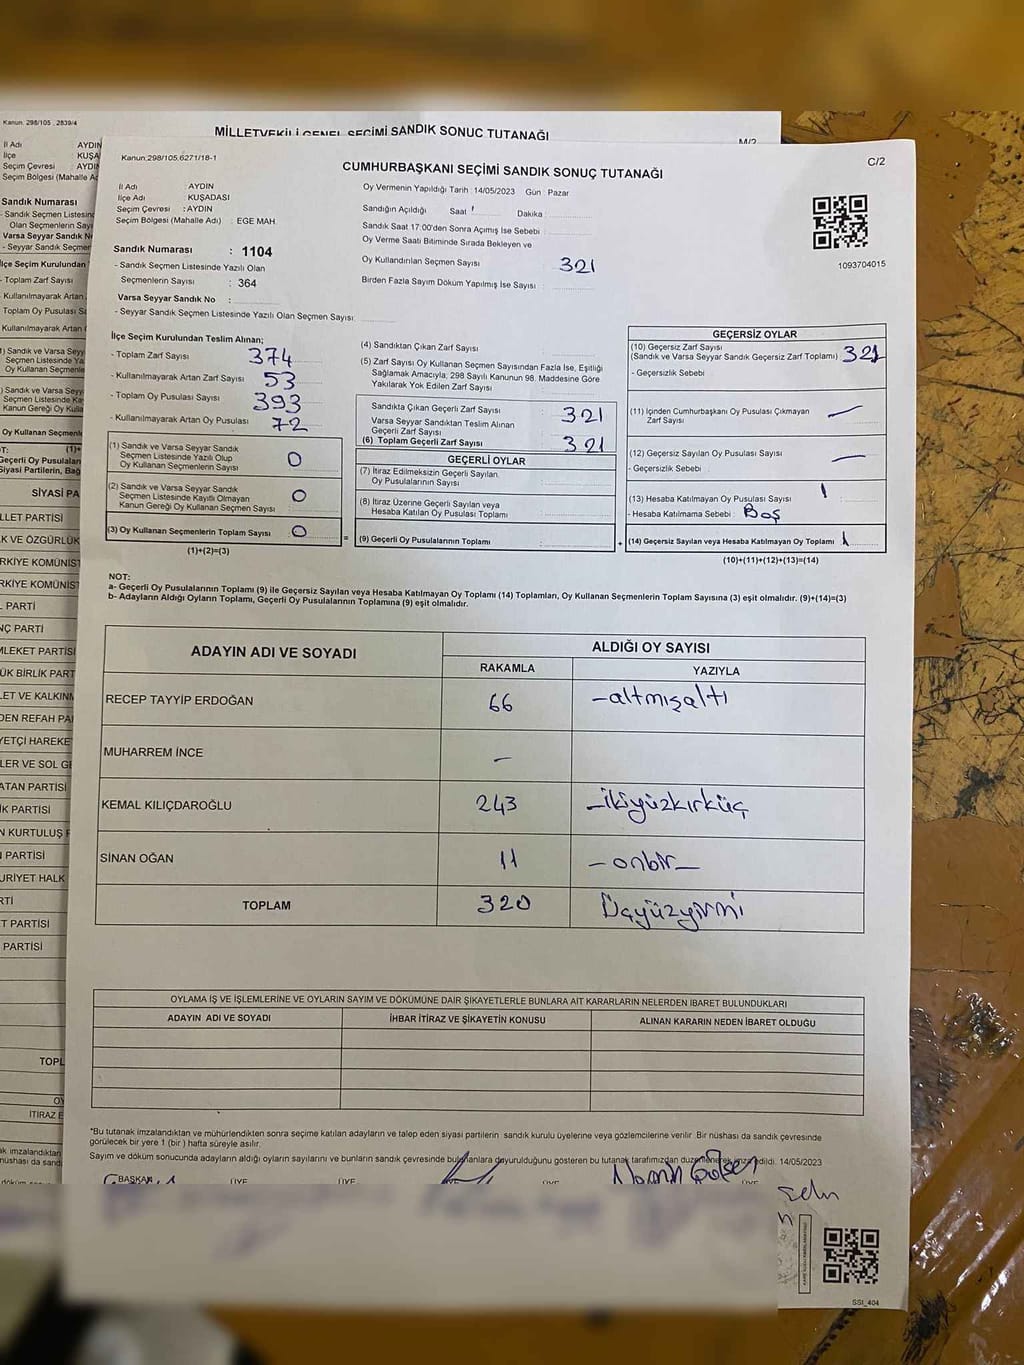 Kanun: 298/105 , 2839/4
MİLLETVEKİLİ GENEL SEÇİMİ SANDIK SONUÇ TUTANAĞI
M/2
İl Adı AYDIN
İlçe KUŞA
Seçim Çevresi AYDI
Seçim Bölgesi (Mahalle A
Sandık Numarası
- Sandık Seçmen Listesin
Olan Seçmenlerin Sayı
Varsa Seyyar Sandık N
- Seyyar Sandık Seçmen
İlçe Seçim Kurulundan
- Toplam Zarf Sayısı
- Kullanılmayarak Artan
Toplam Oy Pusulası S
Kullanılmayarak Artan
SİYASİ PA
LLET PARTİSİ
K VE ÖZGÜRLÜK
RKİYE KOMÜNİS
RKİYE KOMÜNİST
L PARTİ
NÇ PARTİ
MLEKET PARTİSİ
ÜK BİRLİK PART
LET VE KALKINM
DEN REFAH PA
YETÇİ HAREKE
LER VE SOL GE
ATAN PARTİSİ
İK PARTİSİ
N KURTULUŞ F
I PARTİSİ
URİYET HALK
RTİ
T PARTİSİ
PARTİSİ
TOPL
OY
İTİRAZ E
Kanun:298/105,6271/18-1
C/2
CUMHURBAŞKANI SEÇİMİ SANDIK SONUÇ TUTANAĞI
İl Adı : AYDIN
İlçe Adı : KUŞADASI
Seçim Çevresi : AYDIN
Seçim Bölgesi (Mahalle Adı) : EGE MAH.
Sandık Numarası : 1104
- Sandık Seçmen Listesinde Yazılı Olan
Seçmenlerin Sayısı : 364
Varsa Seyyar Sandık No :
- Seyyar Sandık Seçmen Listesinde Yazılı Olan Seçmen Sayısı:
Oy Vermenin Yapıldığı Tarih : 14/05/2023 Gün : Pazar
Sandığın Açıldığı Saat : Dakika :
Sandık Saat 17:00'den Sonra Açılmış İse Sebebi :
Oy Verme Saati Bitiminde Sırada Bekleyen ve
Oy Kullandırılan Seçmen Sayısı : 321
Birden Fazla Sayım Döküm Yapılmış İse Sayısı :
1093704015
İlçe Seçim Kurulundan Teslim Alınan;
- Toplam Zarf Sayısı : 374
- Kullanılmayarak Artan Zarf Sayısı : 53
- Toplam Oy Pusulası Sayısı : 393
- Kullanılmayarak Artan Oy Pusulası : 72
(1) Sandık ve Varsa Seyyar Sandık
Seçmen Listesinde Yazılı Olup
Oy Kullanan Seçmenlerin Sayısı : 0
(2) Sandık ve Varsa Seyyar Sandık
Seçmen Listesinde Kayıtlı Olmayan
Kanun Gereği Oy Kullanan Seçmen Sayısı : 0
(3) Oy Kullanan Seçmenlerin Toplam Sayısı : 0
(1)+(2)=(3)
(4) Sandıktan Çıkan Zarf Sayısı :
(5) Zarf Sayısı Oy Kullanan Seçmen Sayısından Fazla İse, Eşitliği
Sağlamak Amacıyla; 298 Sayılı Kanunun 98. Maddesine Göre
Yakılarak Yok Edilen Zarf Sayısı :
Sandıkta Çıkan Geçerli Zarf Sayısı : 321
Varsa Seyyar Sandıktan Teslim Alınan
Geçerli Zarf Sayısı :
(6) Toplam Geçerli Zarf Sayısı : 321
GEÇERLİ OYLAR
(7) İtiraz Edilmeksizin Geçerli Sayılan
Oy Pusulalarının Sayısı :
(8) İtiraz Üzerine Geçerli Sayılan veya
Hesaba Katılan Oy Pusulası Toplamı :
= (9) Geçerli Oy Pusulalarının Toplamı :
GEÇERSİZ OYLAR
(10) Geçersiz Zarf Sayısı
(Sandık ve Varsa Seyyar Sandık Geçersiz Zarf Toplamı) : 321
- Geçersizlik Sebebi :
(11) İçinden Cumhurbaşkanı Oy Pusulası Çıkmayan
Zarf Sayısı : —
(12) Geçersiz Sayılan Oy Pusulası Sayısı : —
- Geçersizlik Sebebi :
(13) Hesaba Katılmayan Oy Pusulası Sayısı : 1
- Hesaba Katılmama Sebebi : Boş
+ (14) Geçersiz Sayılan veya Hesaba Katılmayan Oy Toplamı : 1
(10)+(11)+(12)+(13)=(14)
NOT:
a- Geçerli Oy Pusulalarının Toplamı (9) ile Geçersiz Sayılan veya Hesaba Katılmayan Oy Toplamı (14) Toplamları, Oy Kullanan Seçmenlerin Toplam Sayısına (3) eşit olmalıdır. (9)+(14)=(3)
b- Adayların Aldığı Oyların Toplamı, Geçerli Oy Pusulalarının Toplamına (9) eşit olmalıdır.
ADAYIN ADI VE SOYADI ALDIĞI OY SAYISI
RAKAMLA YAZIYLA
RECEP TAYYİP ERDOĞAN 66 -altmışaltı
MUHARREM İNCE -
KEMAL KILIÇDAROĞLU 243 -ikiyüzkırküç
SİNAN OĞAN 11 -onbir-
TOPLAM 320 Üçyüzyirmi
OYLAMA İŞ VE İŞLEMLERİNE VE OYLARIN SAYIM VE DÖKÜMÜNE DAİR ŞİKAYETLERLE BUNLARA AİT KARARLARIN NELERDEN İBARET BULUNDUKLARI
ADAYIN ADI VE SOYADI İHBAR İTİRAZ VE ŞİKAYETİN KONUSU ALINAN KARARIN NEDEN İBARET OLDUĞU
*Bu tutanak imzalandıktan ve mühürlendikten sonra seçime katılan adayların ve talep eden siyasi partilerin sandık kurulu üyelerine veya gözlemcilerine verilir. Bir nüshası da sandık çevresinde
görülecek bir yere 1 (bir) hafta süreyle asılır.
Sayım ve döküm sonucunda adayların aldığı oyların sayılarını ve bunların sandık çevresinde bulunanlara duyurulduğunu gösteren bu tutanak tarafımızdan düzenlenerek imza edildi. 14/05/2023
BAŞKAN ÜYE ÜYE ÜYE ÜYE ÜYE
SSI_404